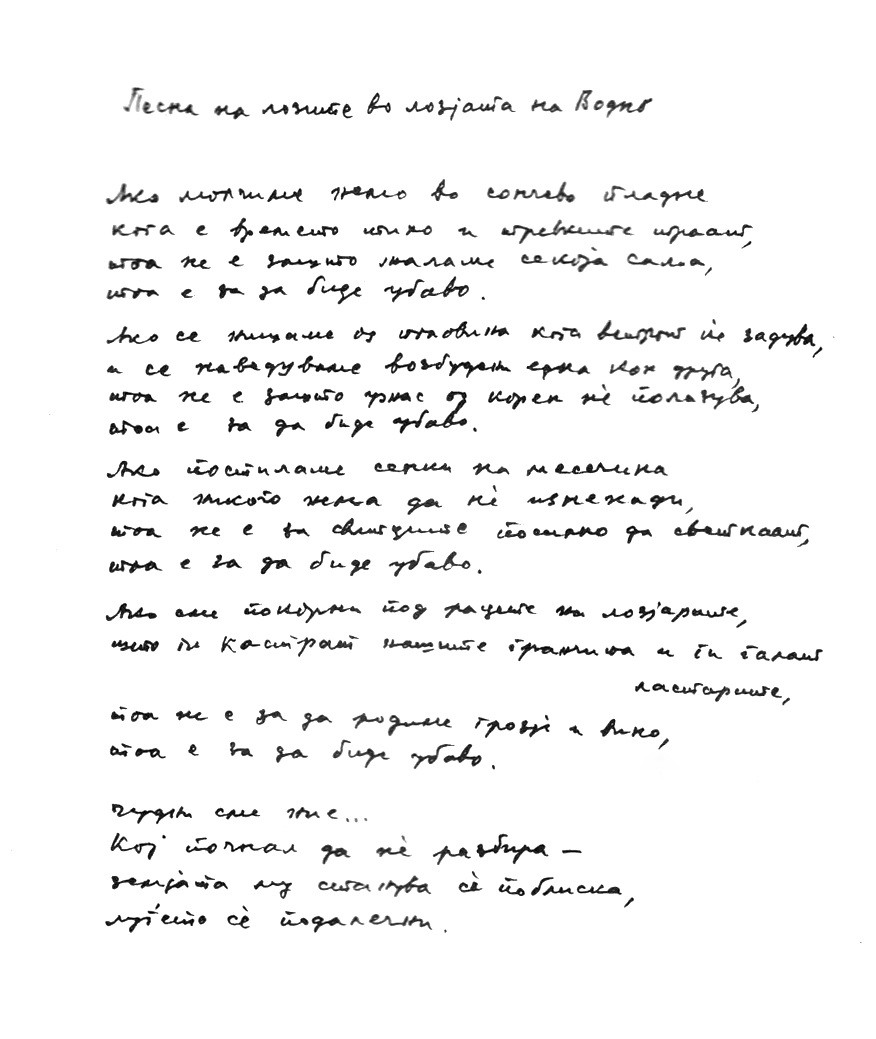 Песна на лозите во лозјата на Водно
Ако молчиме немо во сончево пладне
кога е времето тихо и тревките играат,
тоа не е зашто жаламе секоја сама,
тоа е за да биде убаво.
Ако се нишаме од половина кога ветрот ќе задува,
и се наведуваме возбудени една кон друга,
тоа не е зашто ужас од корен нѐ полазува,
тоа е за да биде убаво.
Ако постиламе сенки на месечина
кога никого нема да нѐ изненади,
тоа не е за светулките посилно да светкаат,
тоа е за да биде убаво.
Ако сме покорни под рацете на лозјарите,
што ги кастрат нашите гранчиња и ги галат
ластарите,
тоа не е за да родиме грозје и вино,
тоа е за да биде убаво.
Чудни сме ние...
Кој почнал да нѐ разбира –
земјата му станува сѐ поблиска,
луѓето сѐ подалечни.